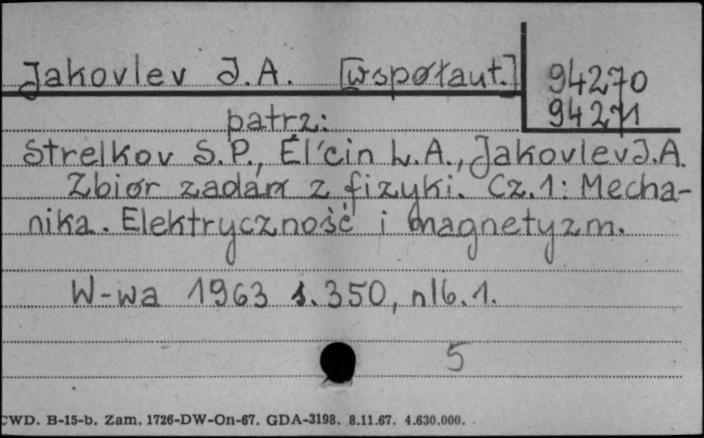 Jakovlev J.A. [współaut.] 94270
94271
patrz:
Strelkov S.P., Él'cin L.A., Jakovlev J.A.
Zbiór zadań z fizyki. Cz.1: Mecha-
nika. Elektryczność i magnetyzm.
W-wa 1963 s. 350, nlb. 1.
5
CWD. B-15-b. Zam. 1726-DW-On-67. GDA-3198. 8.11.67. 4.630.000.